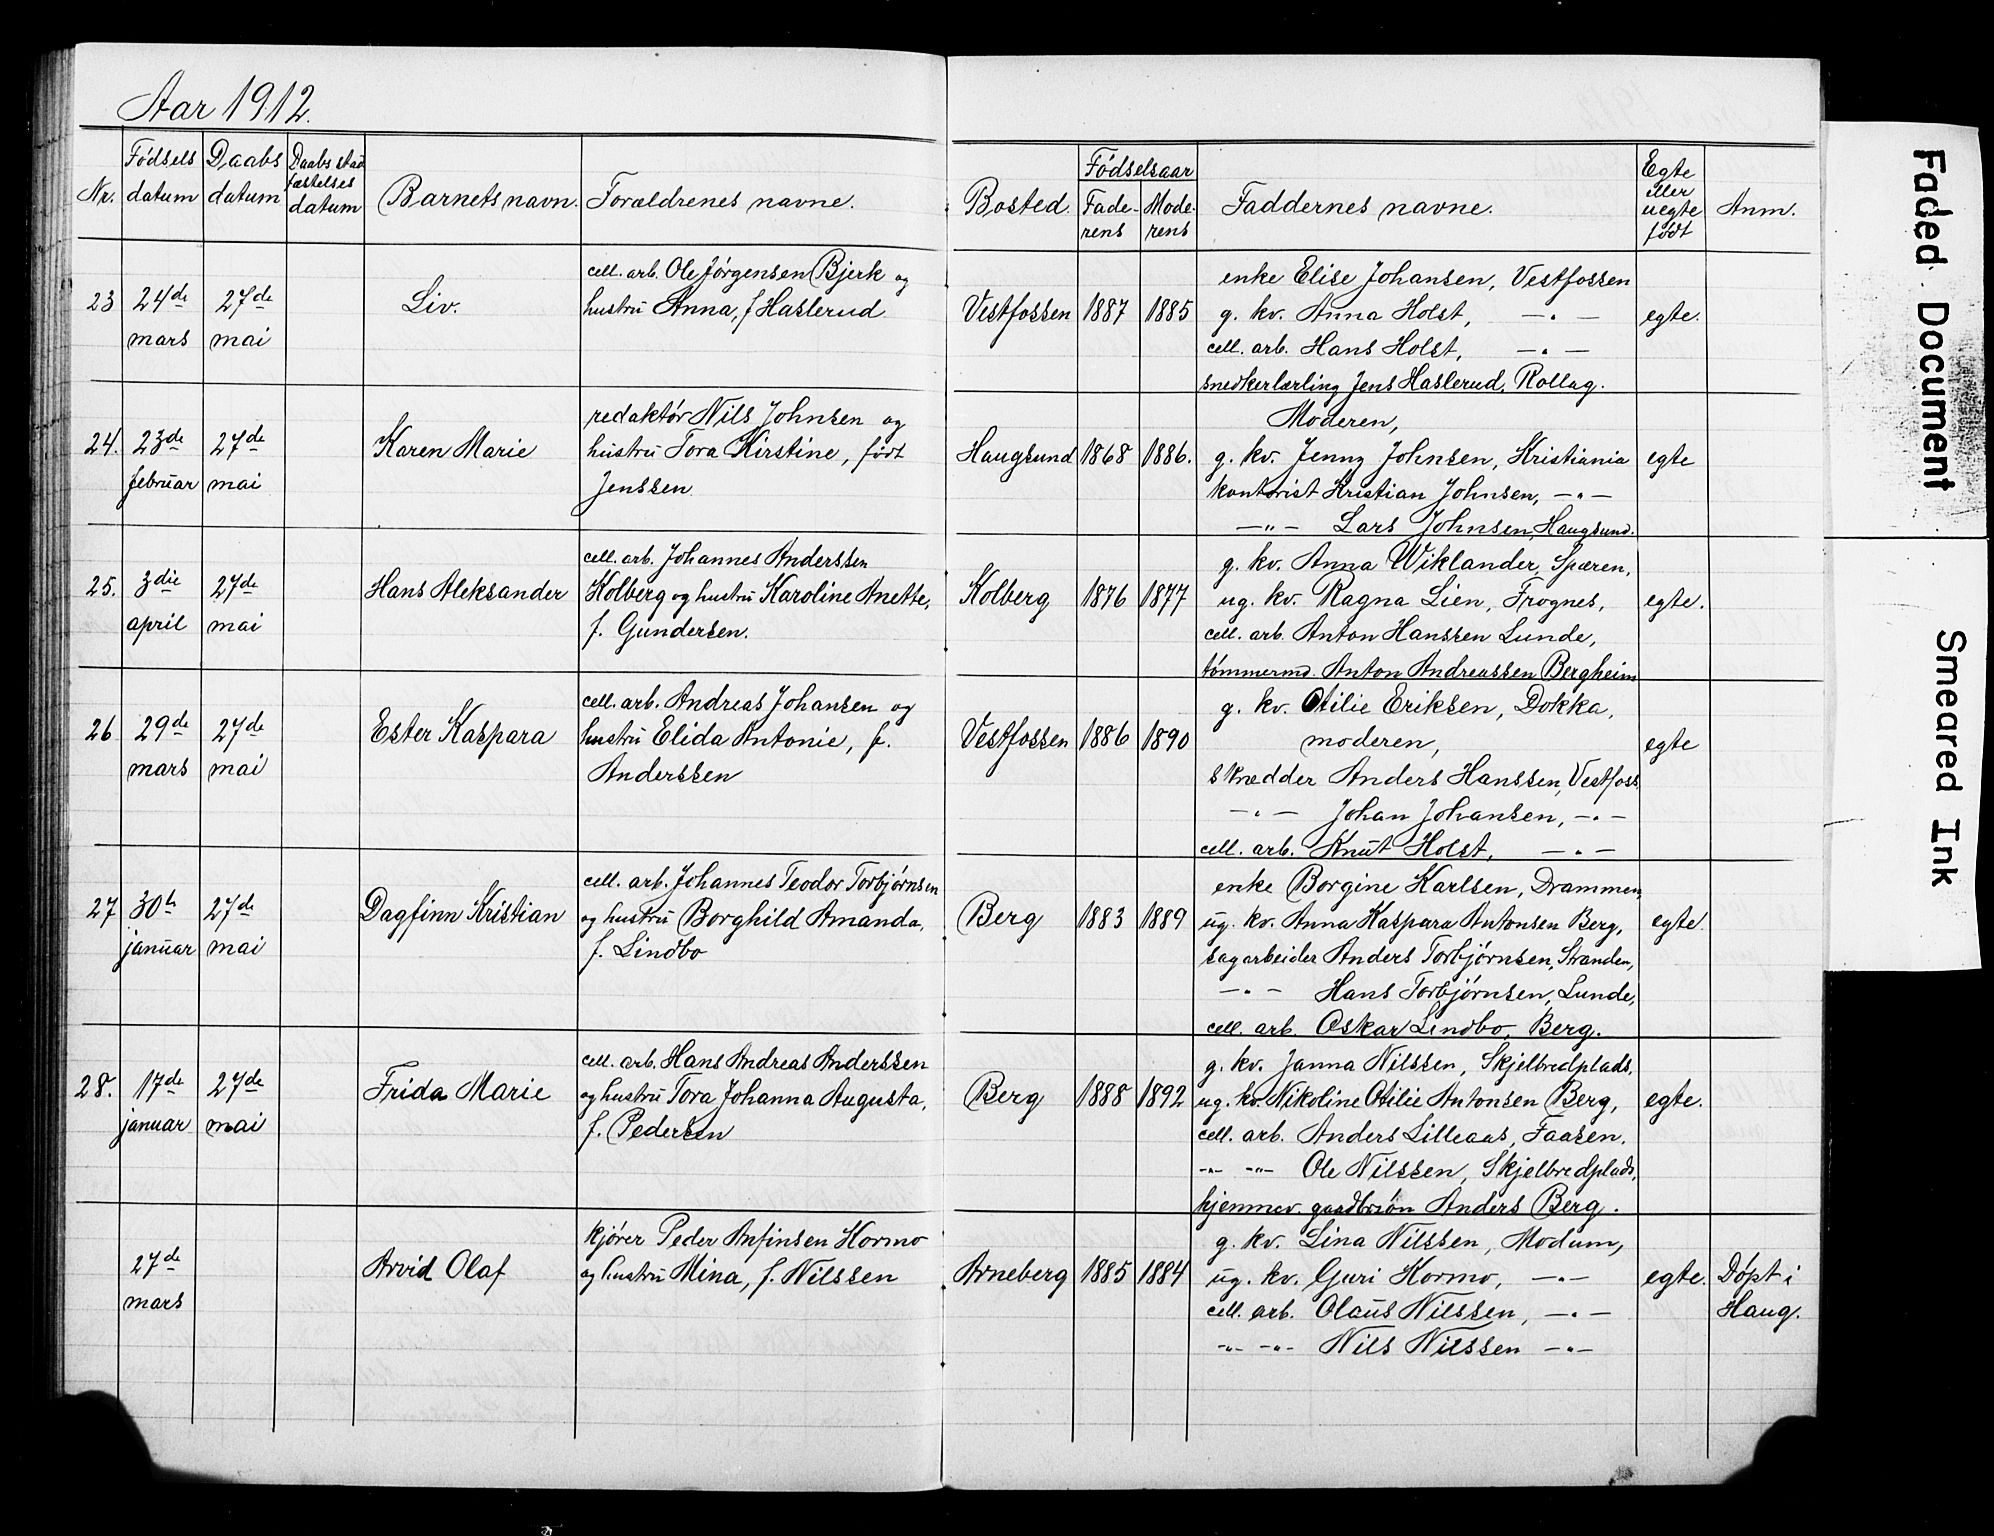 Aar 1912.
Nr.
Fødsels datum
Daabs datum
Daabs stad fæstelses datum
Barnets navn.
Forældrenes navne.
Bosted.
Fødselsaar
Faderens
Moderens
Faddernes navne.
Egte eller uegte født
Anm.
23 24de mars 27de mai
Liv.
cell. arb. Ole Jørgensen Bjerk og
hustru Anna, f Haslerud
Vestfossen 1887 1885
enke Elise Johansen, Vestfossen
g. kv. Anna Holst, —"—
cell. arb. Hans Holst, —"—
snedkerlærling Jens Haslerud, Rollag.
egte.
24. 23de februar 27de mai
Karen Marie
redaktør Nils Johnsen og
hustru Tora Kirstine, født
Jenssen
Haugsund 1868 1886.
Moderen,
g. kv. Jenny Johnsen, Kristiania
kontorist Kristian Johnsen, —"—
—"— Lars Johnsen, Haugsund.
egte
25. 3die april 27de mai
Hans Aleksander
cell. arb. Johannes Anderssen
Kolberg og hustru Karoline Anette,
f. Gundersen.
Kolberg 1876 1877
g. kv. Anna Wiklander, Spæren,
ug. kv. Ragna Lien, Frognes,
cell. arb. Anton Hanssen Lunde,
tømmermd. Anton Andreassen Bergheim
egte.
26 29de mars 27de mai
Ester Kaspara
cell. arb. Andreas Johansen og
hustru Elida Antonie, f.
Anderssen
Vestfossen 1886 1890
g. kv. Otilie Eriksen, Dokka,
moderen,
skrædder Anders Hanssen, Vestfoss.
—"— Johan Johansen, —"—
cell. arb. Knut Holst, —"—
egte
27 30te januar 27de mai
Dagfinn Kristian
cell. arb. Johannes Teodor Torbjørnsen
og hustru Borghild Amanda,
f. Lindbo
Berg 1883 1889
enke Borgine Karlsen, Drammen,
ug. kv. Anna Kaspara Antonsen Berg,
sagarbeider Anders Torbjørnsen, Stranden,
—"— Hans Torbjørnsen, Lunde,
cell. arb. Oskar Lindbo, Berg.
egte.
28. 17de januar 27de mai
Frida Marie
cell. arb. Hans Andreas Anderssen
og hustru Tora Johanna Augusta,
f. Pedersen
Berg 1888 1892
g. kv. Janna Nilssen, Skjelbredplads,
ug. kv. Nikoline Otilie Antonsen Berg,
cell. arb. Anders Lilleaas, Faasen,
—"— —"— Ole Nilssen, Skjelbredplads,
hjemmev. gaardbrsøn Anders Berg.
egte.
27de mars
Arvid Olaf
kjører Peder Anfinsen Hormo
og hustru Mina, f. Nilssen
Arneberg 1885 1884
g. kv. Lina Nilssen, Modum,
ug. kv. Guri Hormo, —"—
cell. arb. Olaus Nilssen, —"—
—"— —"— Nils Nilssen —"—
egte.
Døpt i
Haug.
Faded Document
Smeared Ink